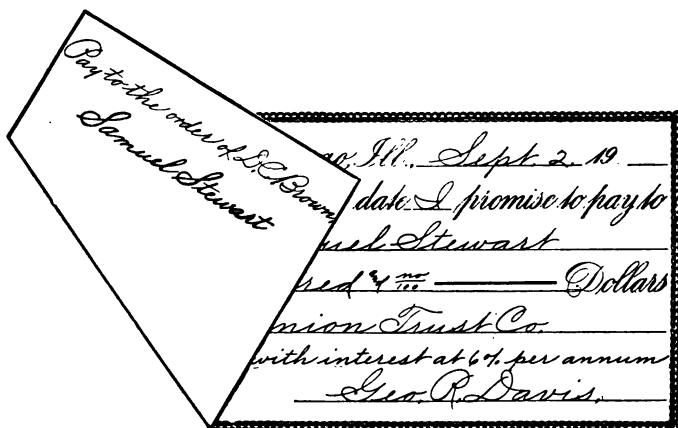 Pay to the order of D. C. Brown,
Samuel Stewart
go, Ill., Sept. 2, 19
date I promise to pay to
uel Stewart
red & no/100 Dollars
nion Trust Co.
with interest at 6% per annum
Geo. R. Davis.